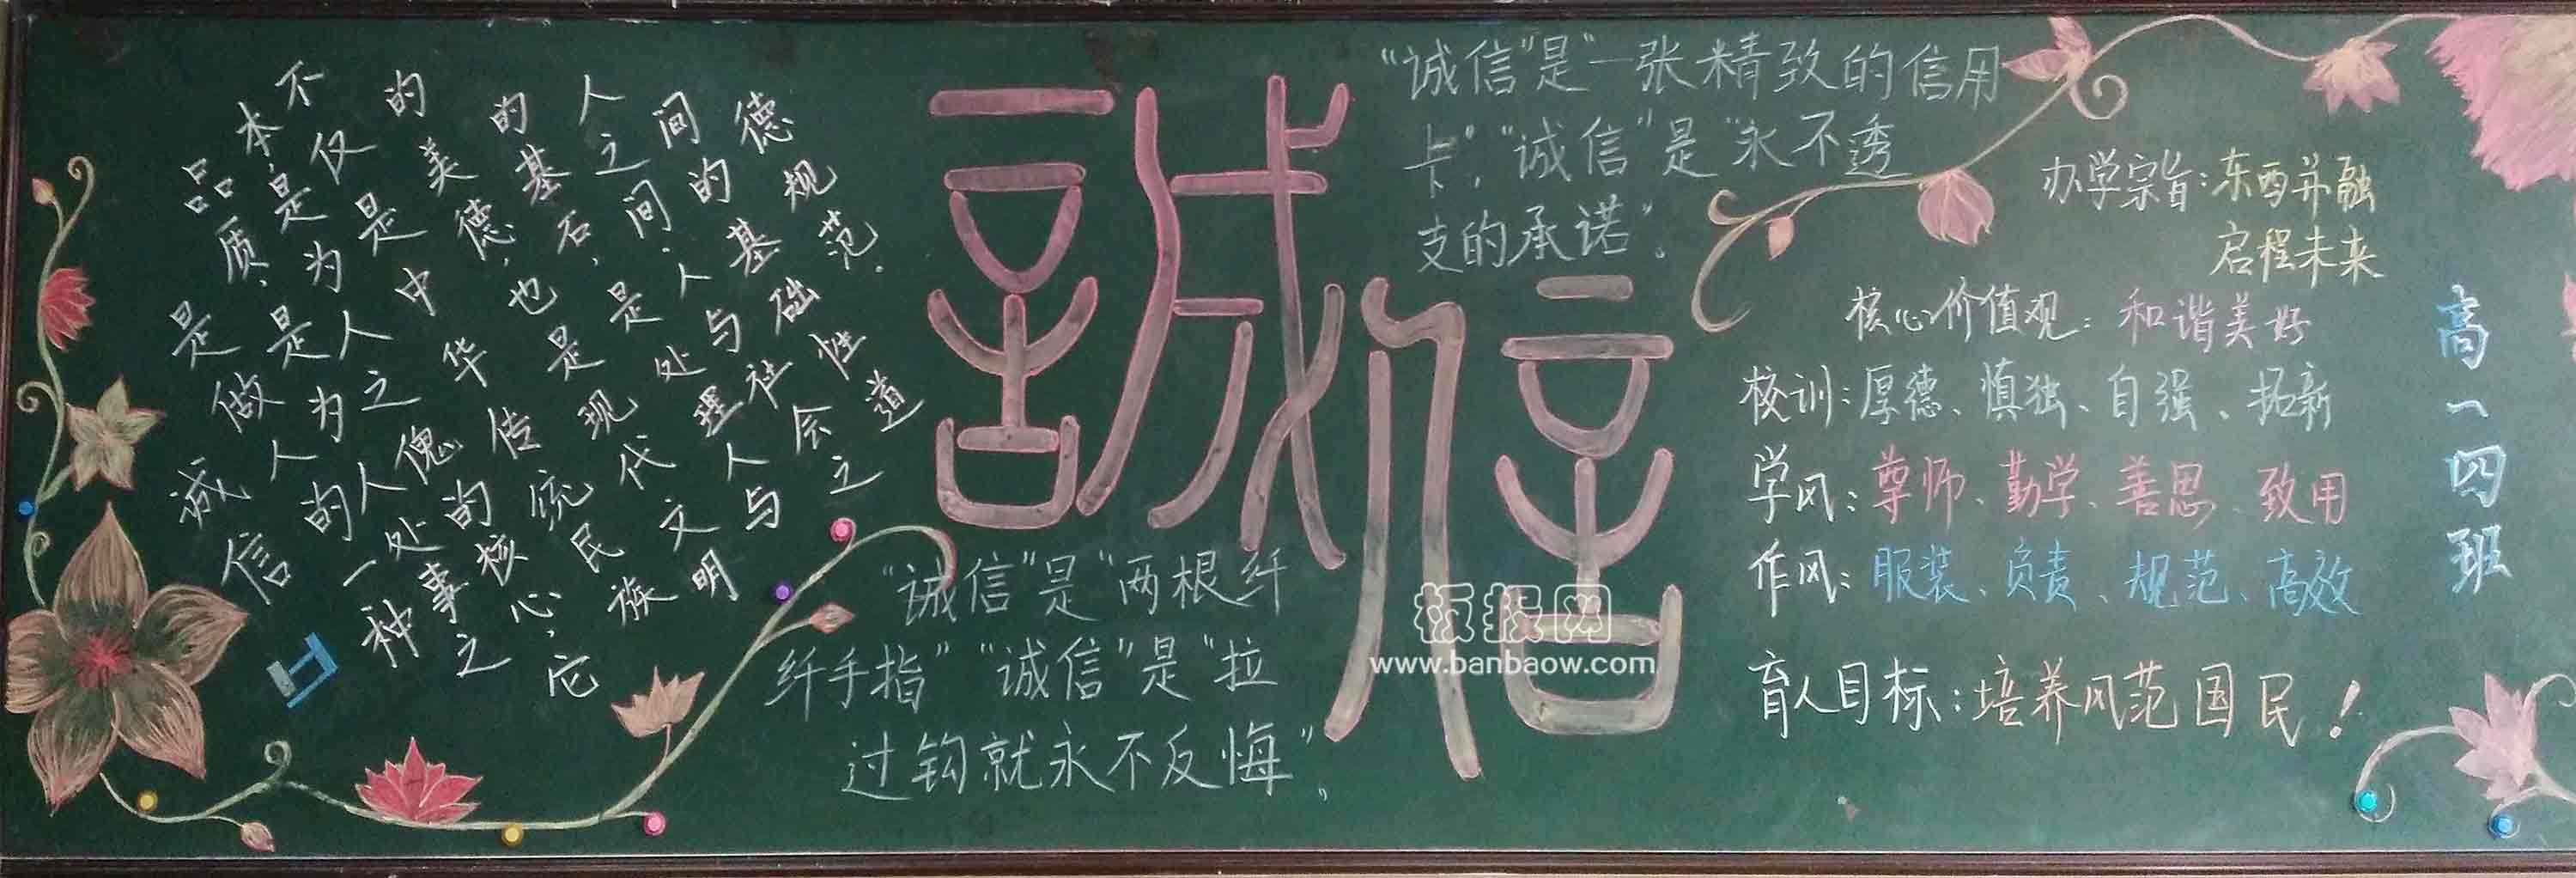 诚信
是做人的一种
品质,是为人处事之
本,是为人之傀的核心,它
不仅是中华传统民族
的美德,也是现代文明
的基石,是处理人与
人之间,人与社会之
间的基础性道
德规范.
誠信
“诚信”是“一张精致的信用
卡”,“诚信”是“永不透
支的承诺”。
“诚信”是“两根纤
纤手指”“诚信”是“拉
过钩就永不反悔”,
办学宗旨:东西并融
启程未来
核心价值观:和谐美好
校训:厚德、慎独、自强、拓新
学风:尊师、勤学、善思、致用
作风:服装、负责、规范、高效
育人目标:培养风范国民!
高一四班
板报网
www.banbaow.com